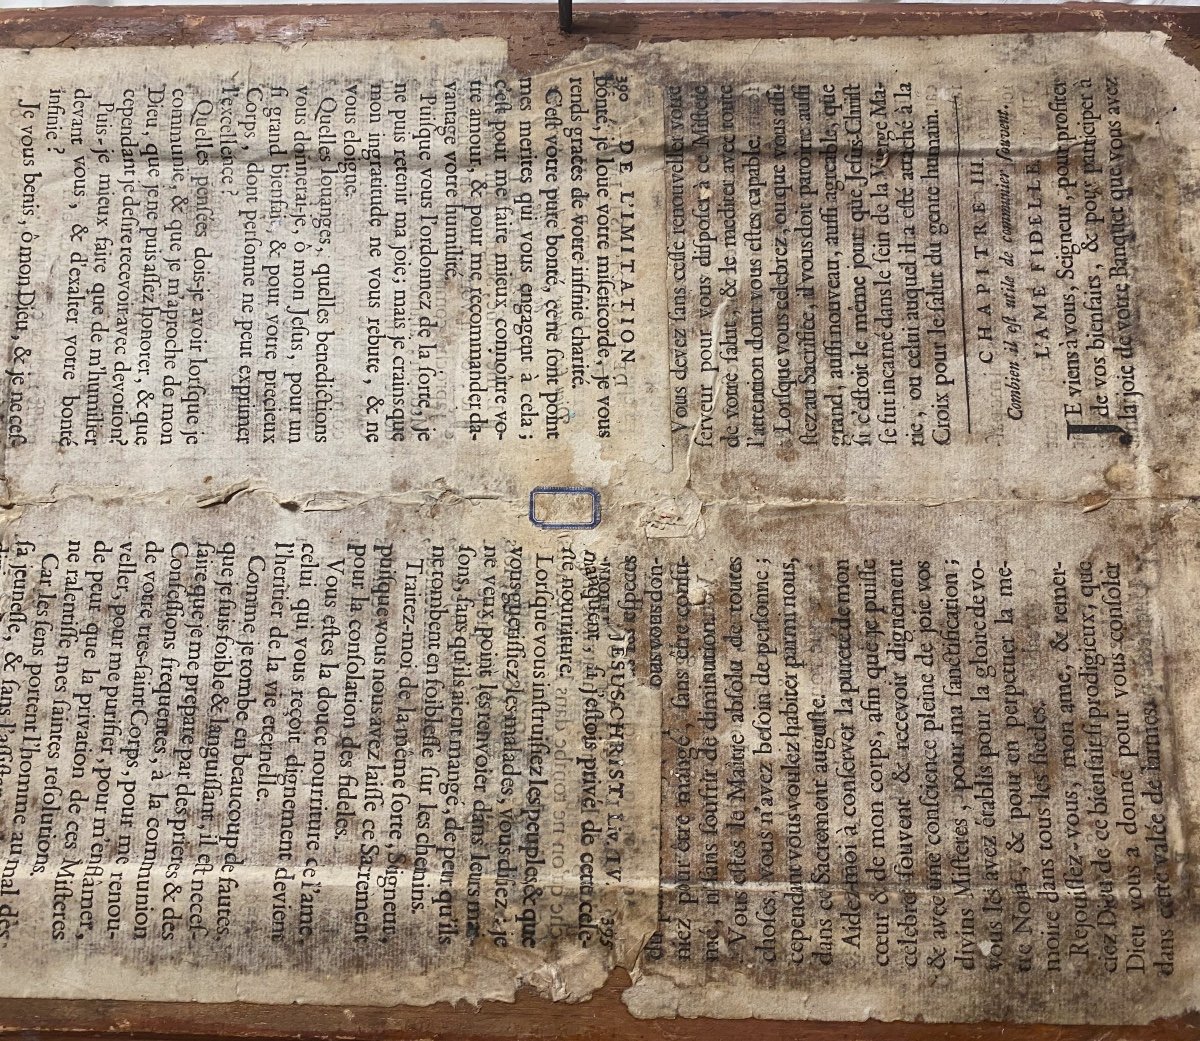 390
DE L'IMITATION
bonté, je loue votre misericorde, je vous
rends graces de votre infinie charité.
C'est votre pure bonté, ce ne sont point
mes merites qui vous engagent à cela ;
c'est pour me faire mieux connoitre vo-
tre amour, & pour me recommander da-
vantage votre humilité.
Puisque vous l'ordonnez de la sorte, je
ne puis retenir ma joie ; mais je crains que
mon ingratitude ne vous rebute, & ne
vous eloigne.
Quelles louanges, quelles benedictions
vous donnerai-je, ô mon Jesus, pour un
si grand bienfait, & pour votre precieux
Corps, dont personne ne peut exprimer
l'excellence ?
Quelles pensées dois-je avoir lorsque je
communie, & que je m'aproche de mon
Dieu, que je ne puis assez honorer, & que
cependant je desire recevoir avec devotion ?
Puis-je mieux faire que de m'humilier
devant vous, & d'exalter votre bonté
infinie ?
Je vous benis, ô mon Dieu, & je ne cesse
JESUS-CHRIST. Liv. IV.
395
manquent, si j'estois privé de cette cele-
ste nourriture.
Lorsque vous instruisiez les peuples & que
vous guerissiez les malades, vous disiez, je
ne veux point les renvoier dans leurs mai-
sons, sans qu'ils aient mangé, de peur qu'ils
ne tombent en foiblesse sur les chemins.
Traitez-moi de la même sorte, Signeur,
puisque vous nous avez laissé ce Sacrement
pour la consolation des fideles.
Vous estes la douce nourriture de l'ame,
celui qui vous reçoit dignement devient
l'heritier de la vie eternelle.
Comme je tombe en beaucoup de fautes,
que je suis foible & languissant, il est neces-
saire que je me prepare par des prieres & des
Confessions frequentes, à la communion
de votre tres-saint Corps, pour me renou-
veller, pour me purifier, pour m'enflâmer,
de peur que la privation de ces Misteres
ne ralentisse mes saintes resolutions.
Car les sens portent l'homme au mal dès
sa jeunesse, & sans l'assistance
Vous devez sans cesse renouveller votre
ferveur pour vous disposer à ce Mistere
de votre salut, & le mediter avec toute
l'attention dont vous estes capable.
Lorsque vous celebrez, ou que vous assi-
stez au Sacrifice, il vous doit paroitre aussi
grand, aussi nouveau, aussi agreable, que
si c'estoit le même jour que Jesus-Christ
se fut incarné dans le sein de la Vierge Ma-
rie, ou celui auquel il a esté ataché à la
Croix pour le salut du genre humain.
CHAPITRE III.
Combien il est utile de communier souvent.
L'AME FIDELLE.
JE viens à vous, Seigneur, pour profiter
de vos bienfaits, & pour participer à
la joie de votre Banquet que vous avez
niez pour être mangé, sans être consu-
mé, ni sans soufrir de diminution.
Vous estes le Maitre absolu de toutes
choses, vous n'avez besoin de personne ;
cependant vous voulez habiter parmi nous,
dans ce Sacrement auguste.
Aidez-moi à conserver la pureté de mon
cœur & de mon corps, afin que je puisse
celebrer souvent & recevoir dignement
& avec une conscience pleine de joie vos
divins Misteres, pour ma sanctification ;
vous les avez établis pour la gloire de vo-
tre Nom, & pour en perpetuer la me-
moire dans tous les siecles.
Rejouissez-vous, mon ame, & remer-
ciez Dieu de ce bienfait si prodigieux, que
Dieu vous a donné pour vous consoler
dans cette valée de larmes.